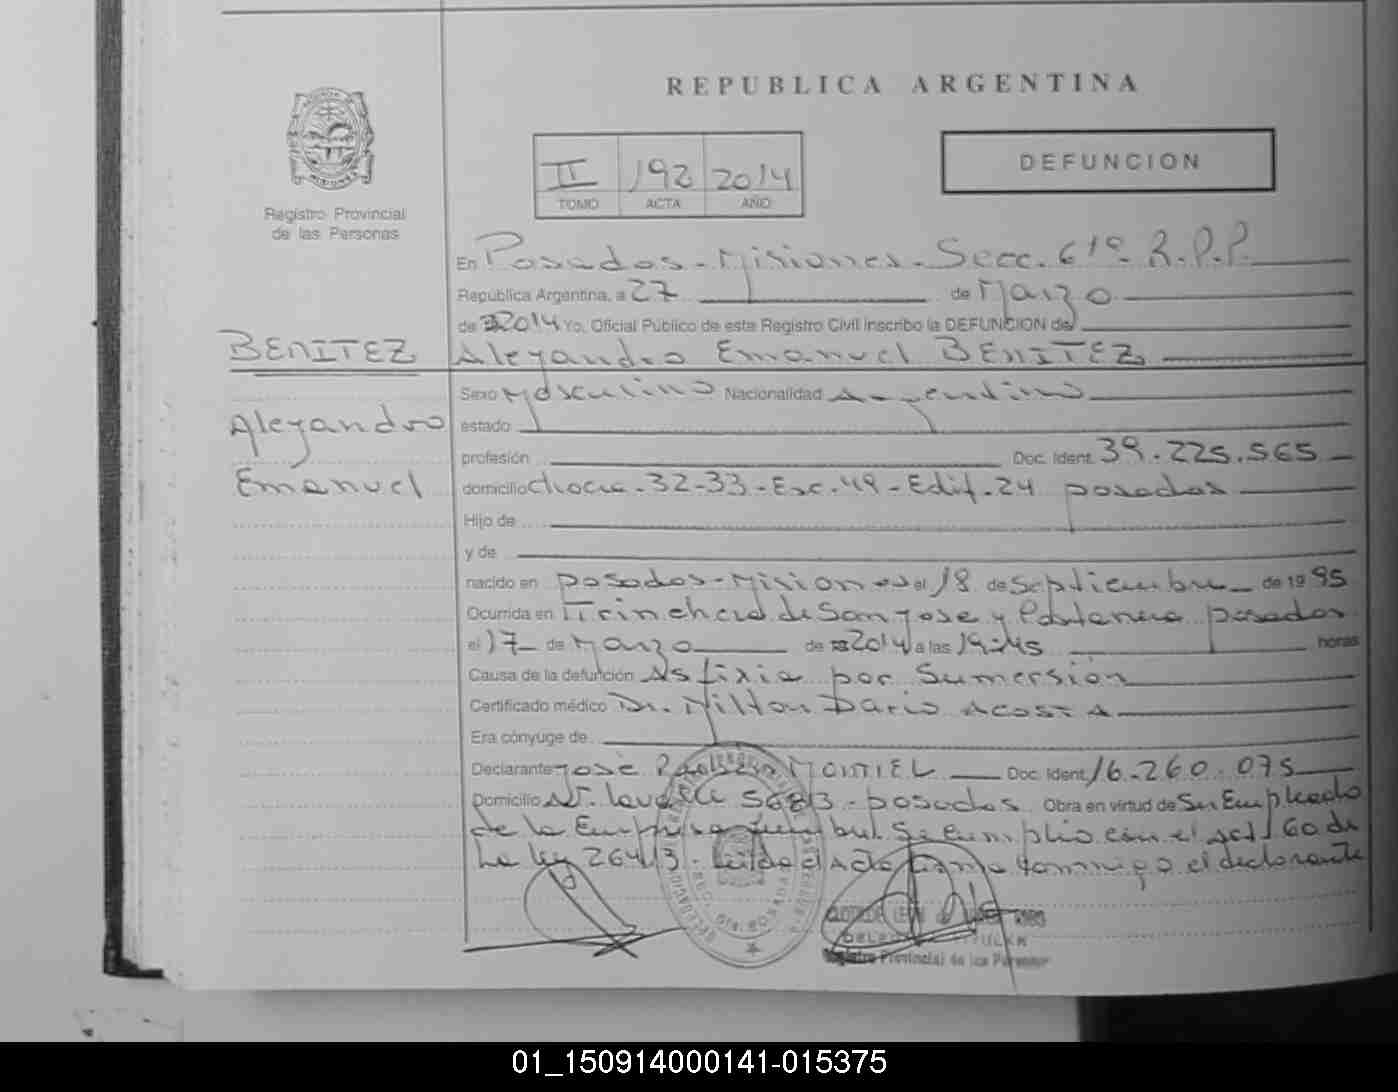 REPUBLICA ARGENTINA
II 192 2014
TOMO ACTA AÑO
DEFUNCION
Registro Provincial
de las Personas
En Posadas - Misiones - Secc. 61º R.P.P.
República Argentina, a 27 de Marzo
de 2014 Yo, Oficial Público de este Registro Civil inscribo la DEFUNCION de
BENITEZ Alejandro Emanuel BENITEZ
Sexo Masculino Nacionalidad Argentino
Alejandro
estado
profesión Doc. Ident. 39.225.565
Emanuel
domicilio Chacra - 32-33 - Esc. 49 - Edif. 24 posadas
Hijo de
y de
nacido en posadas - Misiones el 18 de Septiembre de 1995
Ocurrida en Trinchera de San Jose y posadas
el 17 de Marzo de 2014 a las 19:45 horas
Causa de la defunción Asfixia por Sumersión
Certificado médico Dr. Milton Dario ACOSTA
Era cónyuge de
Declarante José MONTIEL Doc. Ident. 16.260.075
Domicilio Av. Lavalle 5683 - posadas Obra en virtud de Ser Empleado
de la Empresa Se cumplio con el art. 60 de
La ley 26413 - Leida el Acta firma conmigo el declarante
Registro Provincial de las Personas
01_150914000141-015375